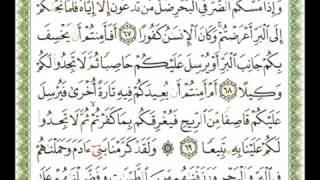 وَإِذَا مَسَّكُمُ الضُّرُّ فِي الْبَحْرِ ضَلَّ مَن تَدْعُونَ إِلَّا إِيَّاهُ فَلَمَّا نَجَّىٰكُمْ
إِلَى الْبَرِّ أَعْرَضْتُمْ وَكَانَ الْإِنسَٰنُ كَفُورًا ﴿٦٧﴾ أَفَأَمِنتُمْ أَن يَخْسِفَ
بِكُمْ جَانِبَ الْبَرِّ أَوْ يُرْسِلَ عَلَيْكُمْ حَاصِبًا ثُمَّ لَا تَجِدُوا لَكُمْ
وَكِيلًا ﴿٦٨﴾ أَمْ أَمِنتُمْ أَن يُعِيدَكُمْ فِيهِ تَارَةً أُخْرَىٰ فَيُرْسِلَ
عَلَيْكُمْ قَاصِفًا مِّنَ الرِّيحِ فَيُغْرِقَكُم بِمَا كَفَرْتُمْ ثُمَّ لَا تَجِدُوا
لَكُمْ عَلَيْنَا بِهِ تَبِيعًا ﴿٦٩﴾ وَلَقَدْ كَرَّمْنَا بَنِي ءَادَمَ وَحَمَلْنَٰهُمْ
فِي الْبَرِّ وَالْبَحْرِ وَرَزَقْنَٰهُم مِّنَ الطَّيِّبَٰتِ وَفَضَّلْنَٰهُمْ عَلَىٰ